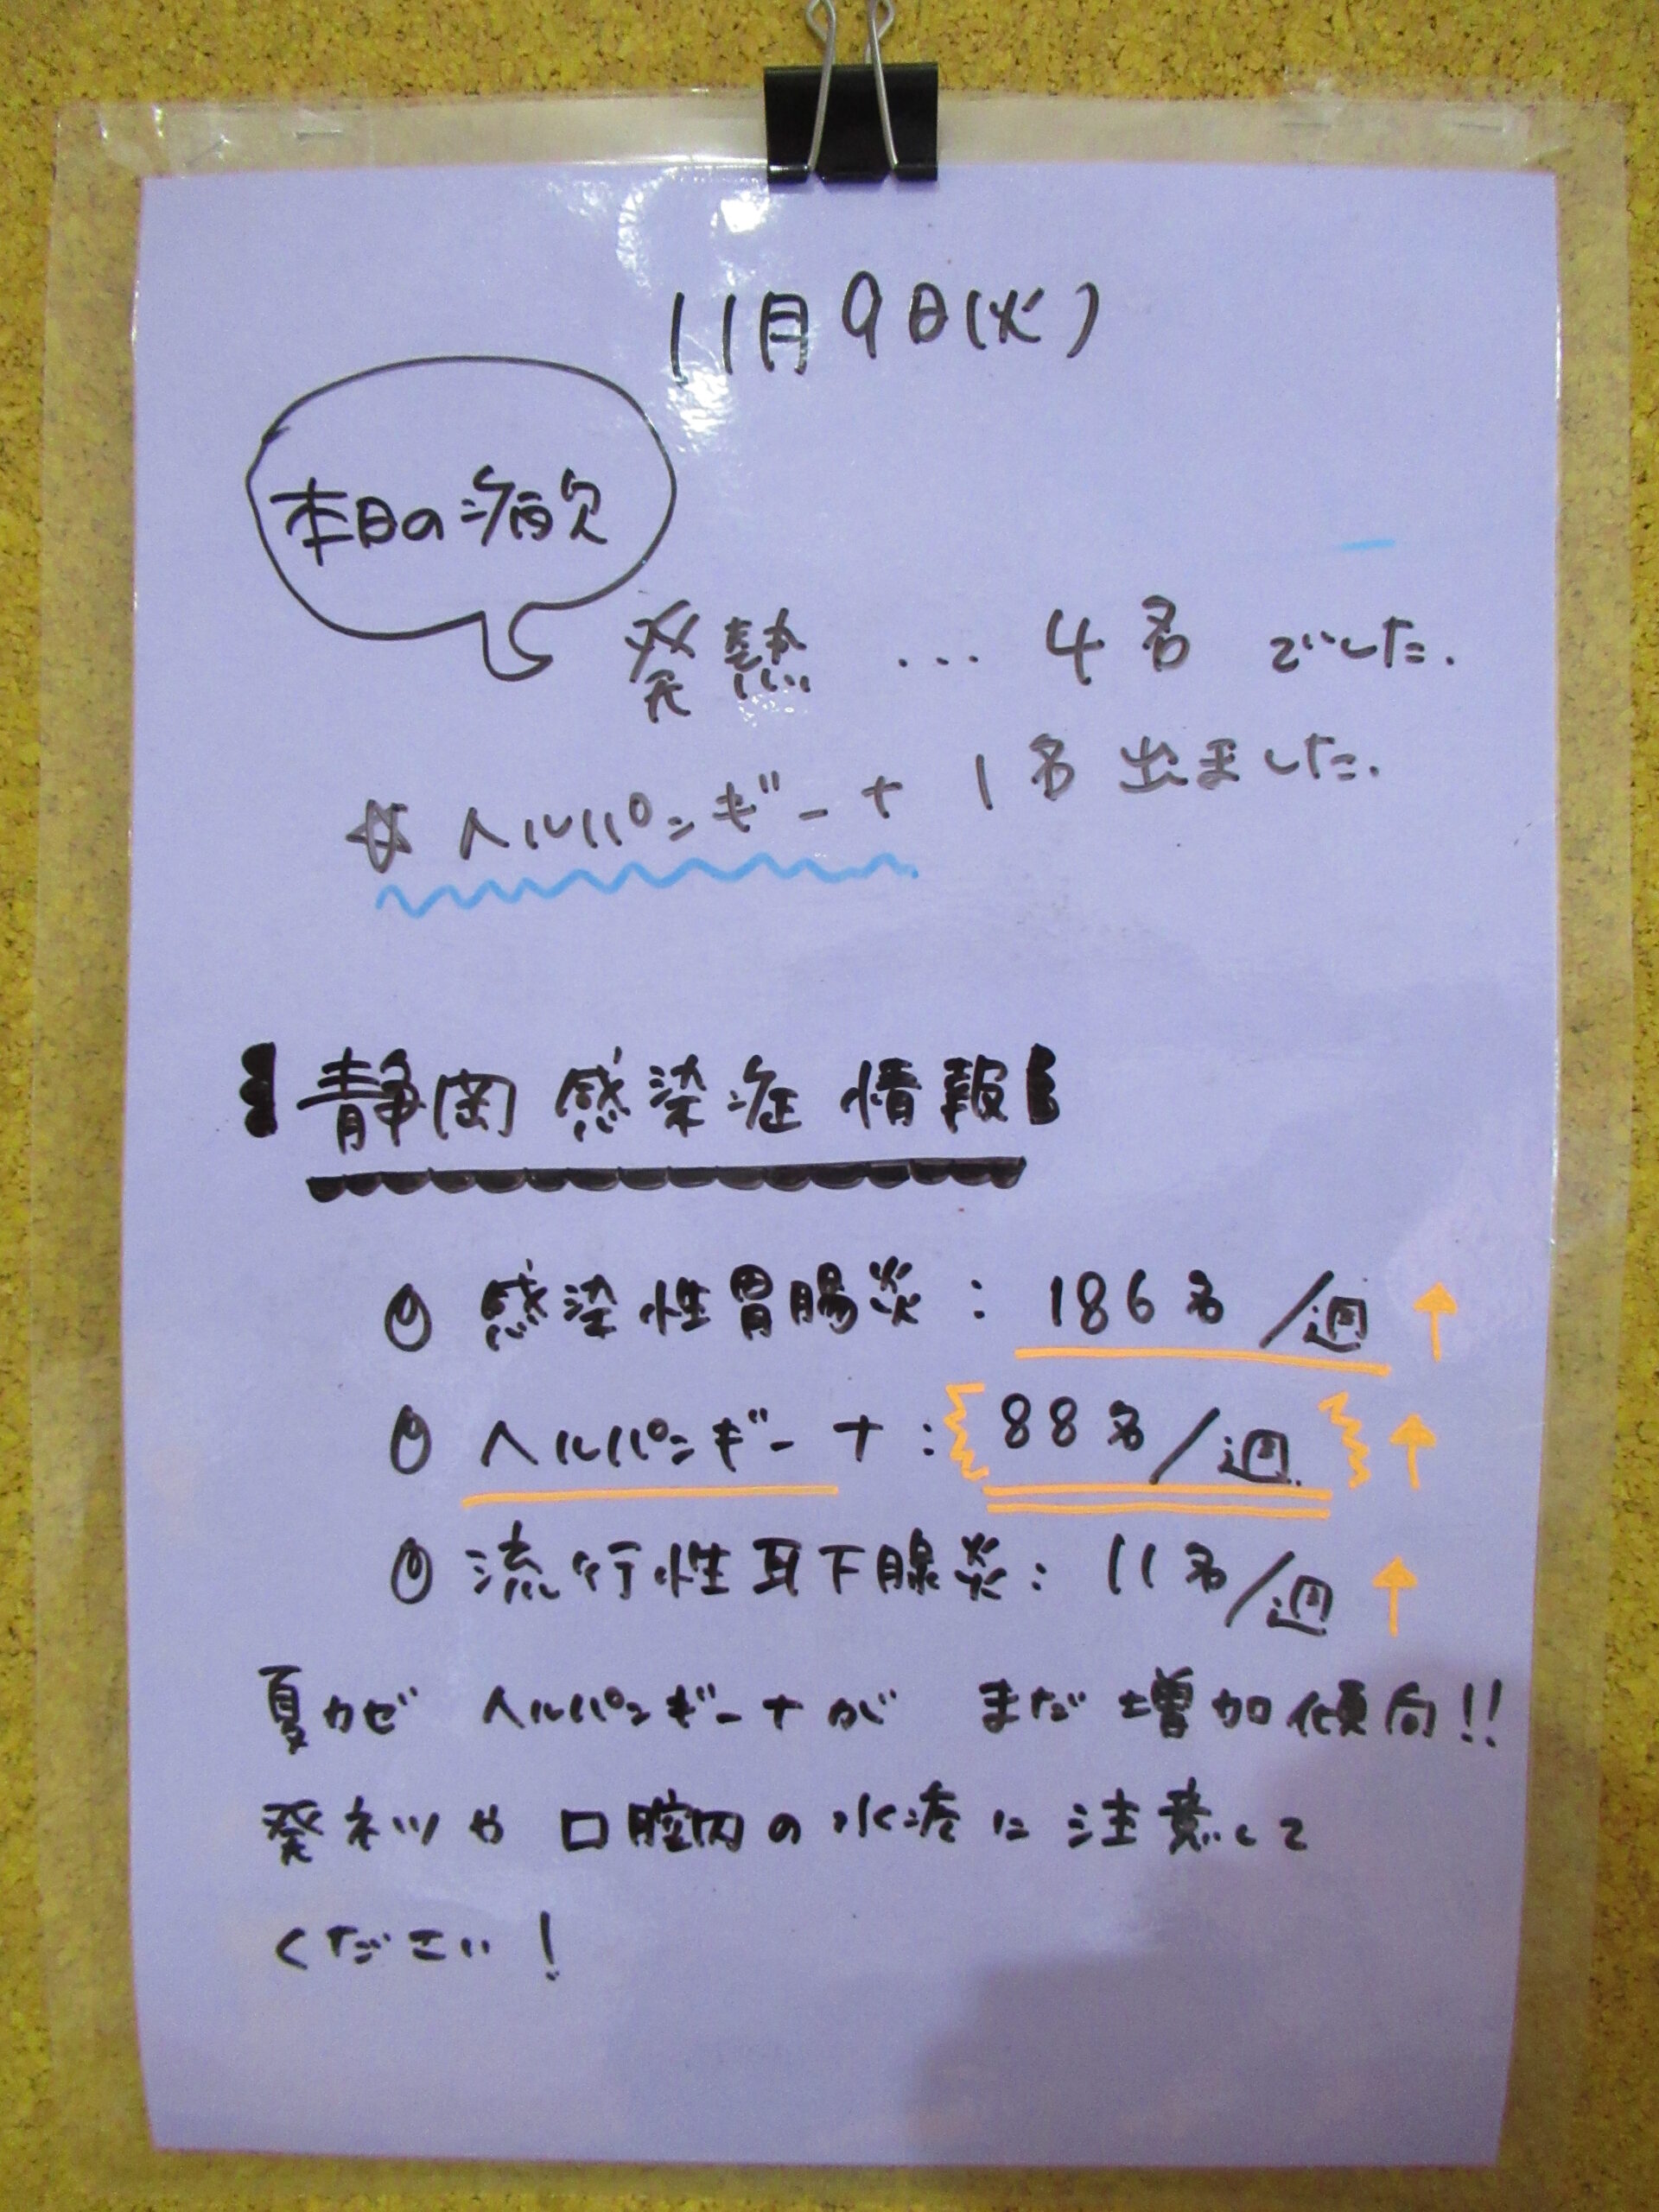 11月9日(火)
本日の病欠
発熱 … 4名 でした.
☆ ヘルパンギーナ 1名 出ました.
【静岡 感染症 情報】
感染性胃腸炎 : 186名/週 ↑
ヘルパンギーナ : 88名/週 ↑
流行性耳下腺炎 : 11名/週 ↑
夏カゼ ヘルパンギーナが まだ 増加傾向!!
発ネツや 口腔内の 水疱に 注意して
ください!